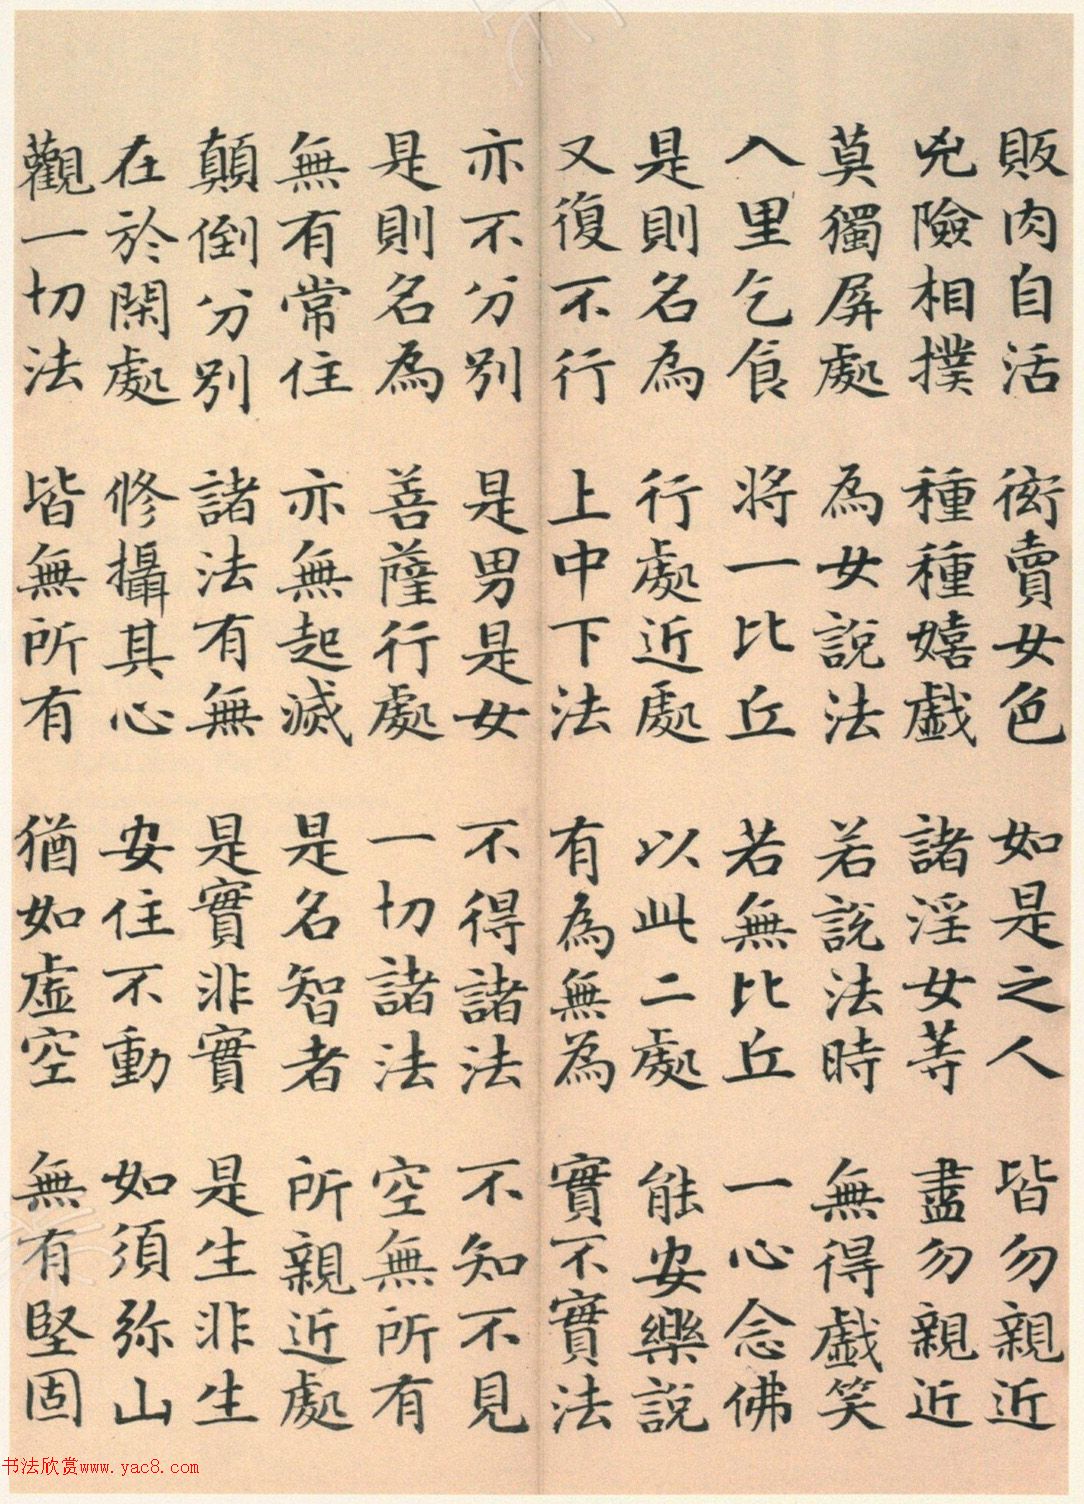 販肉自活 衒賣女色 如是之人 皆勿親近
兇險相撲 種種嬉戲 諸淫女等 盡勿親近
莫獨屏處 為女說法 若說法時 無得戲笑
入里乞食 將一比丘 若無比丘 一心念佛
是則名為 行處近處 以此二處 能安樂說
又復不行 上中下法 有為無為 實不實法
亦不分別 是男是女 不得諸法 不知不見
是則名為 菩薩行處 一切諸法 空無所有
無有常住 亦無起滅 是名智者 所親近處
顛倒分別 諸法有無 是實非實 是生非生
在於閑處 修攝其心 安住不動 如須弥山
觀一切法 皆無所有 猶如虛空 無有堅固
书法欣赏www.yac8.com